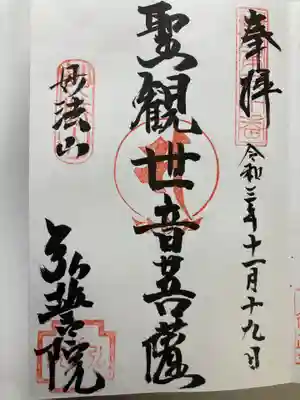 奉拝
令和三年十一月十九日
聖観世音菩薩
丹法山
弘誓院